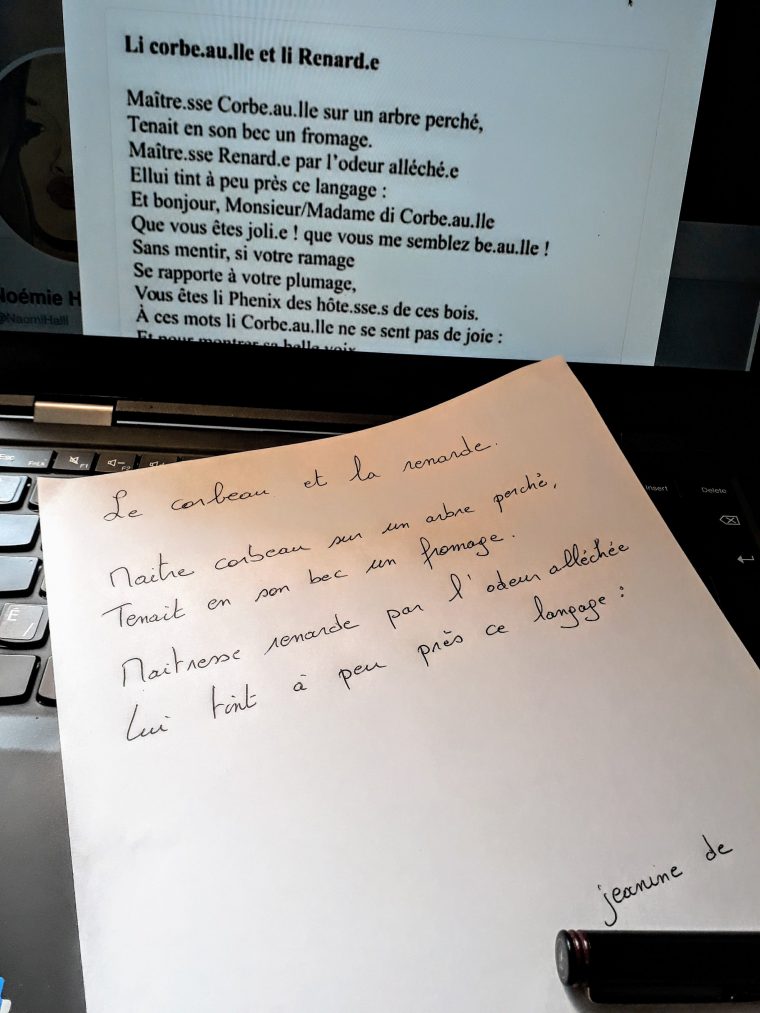 Li corbe.au.lle et li Renard.e
Maître.sse Corbe.au.lle sur un arbre perché,
Tenait en son bec un fromage.
Maître.sse Renard.e par l’odeur alléché.e
Ellui tint à peu près ce langage :
Et bonjour, Monsieur/Madame di Corbe.au.lle
Que vous êtes joli.e ! que vous me semblez be.au.lle !
Sans mentir, si votre ramage
Se rapporte à votre plumage,
Vous êtes li Phenix des hôte.sse.s de ces bois.
À ces mots li Corbe.au.lle ne se sent pas de joie :
Et pour montrer sa belle voix
Noémie H
@NaomiHalll
Esc
FnLk
F1
F2
Insert
Delete
É
Le corbeau et la renarde.
Maitre corbeau sur un arbre perché,
Tenait en son bec un fromage.
Maitresse renarde par l'odeur alléchée
Lui tint à peu près ce langage :
jeanine de